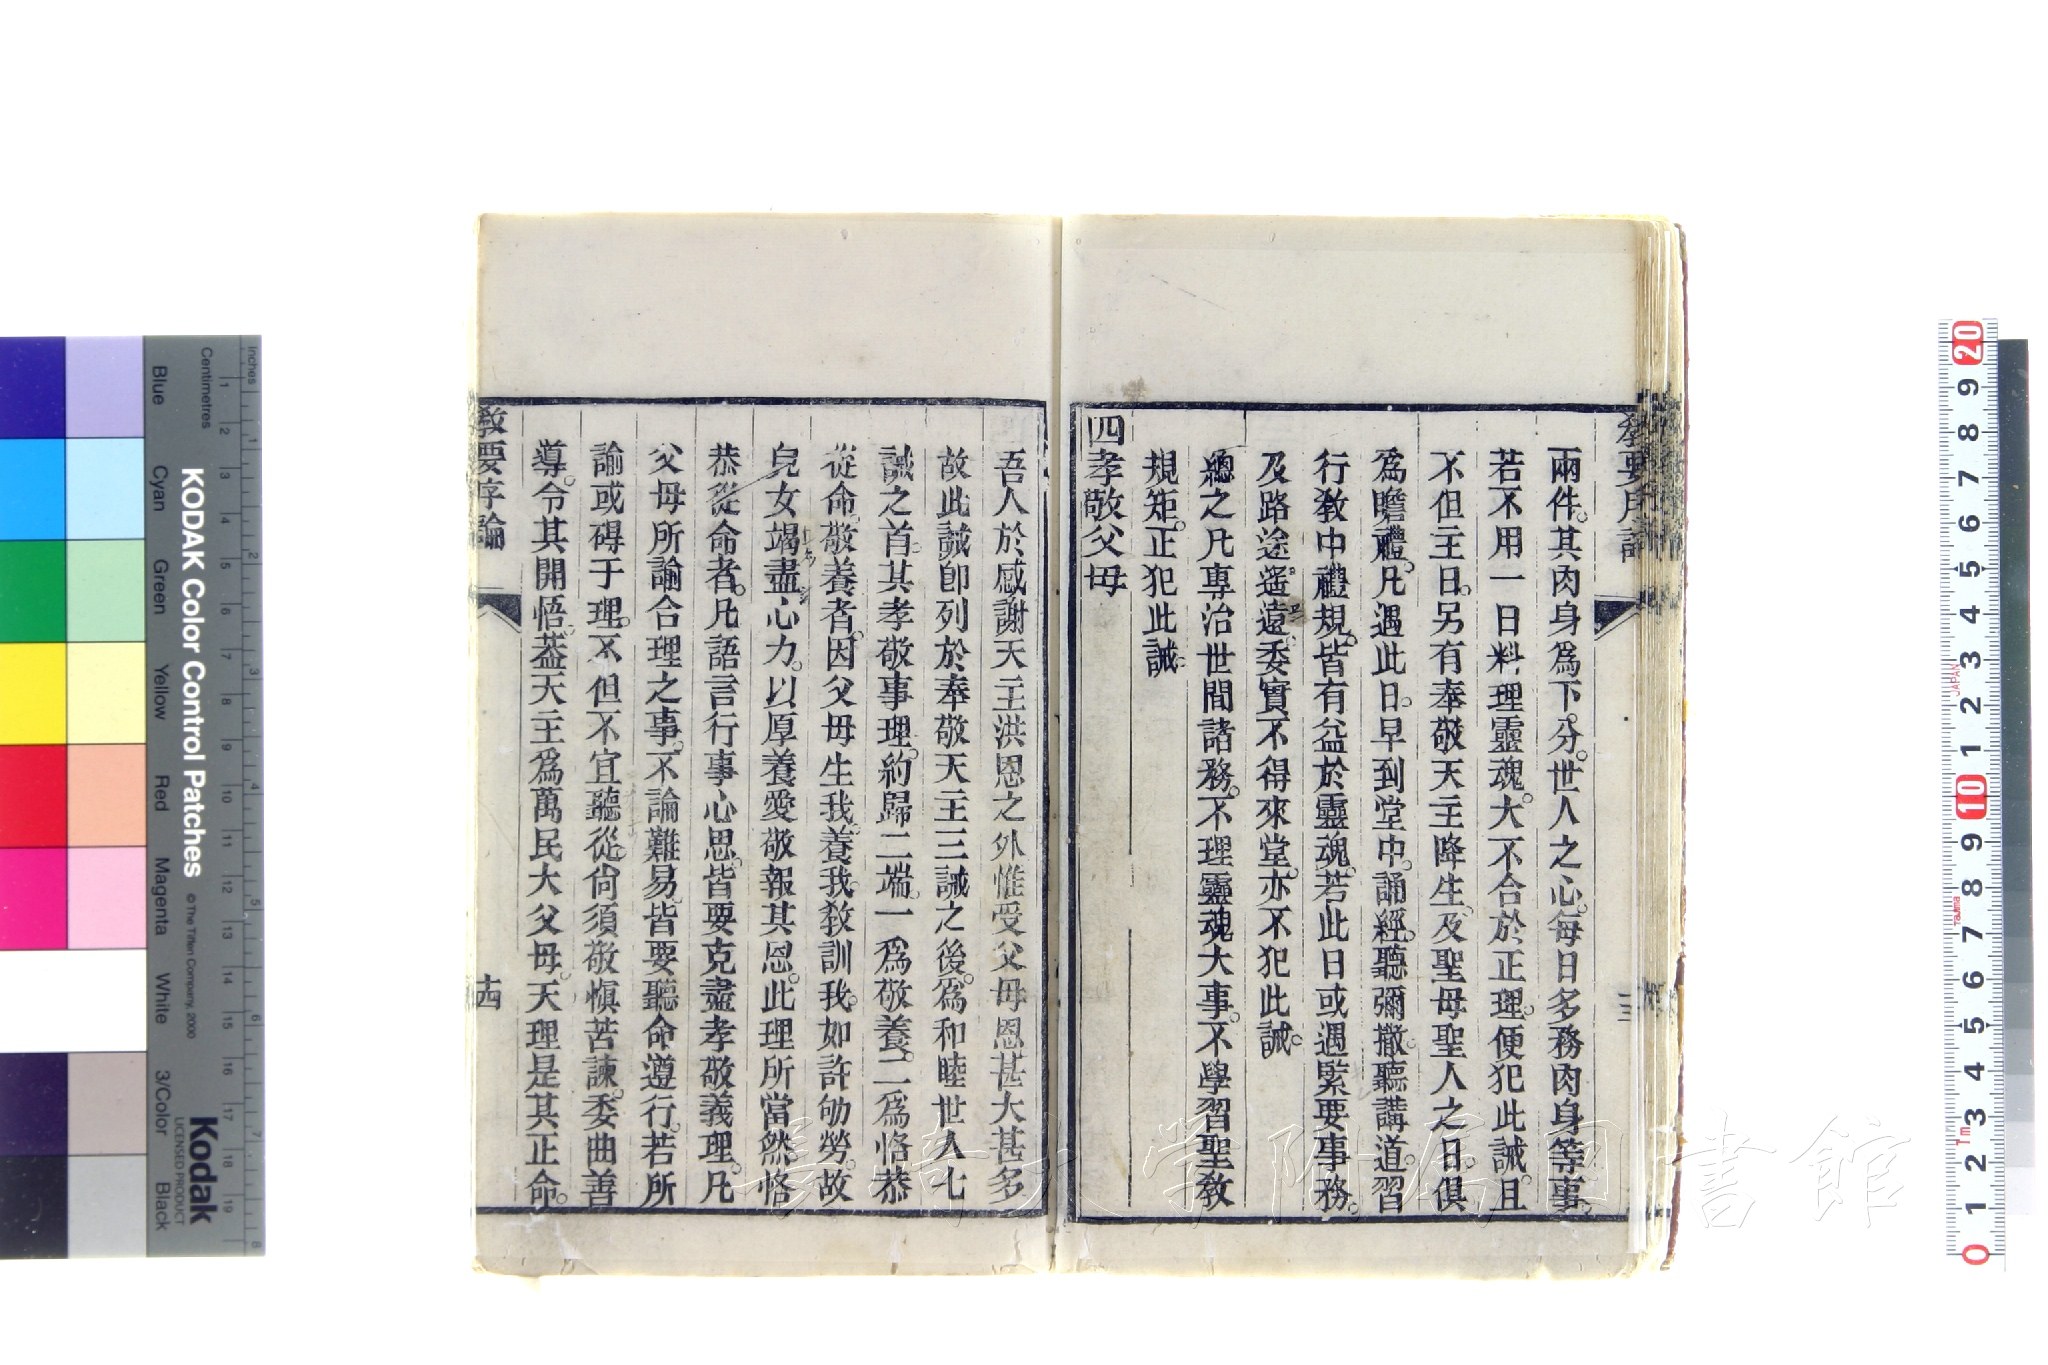 兩件。其肉身爲下分。世人之心。每日多務肉身等事。
若不用一日料理靈魂。大不合於正理。便犯此誡。且
不但主日。另有奉敬天主降生、及聖母聖人之日。俱
爲瞻禮。凡遇此日。早到堂中。誦經。聽彌撒。聽講道。習
行教中禮規。皆有益於靈魂。若此日或遇緊要事務。
及路途遥遠。委實不得來堂。亦不犯此誡。
總之凡專治世間諸務。不理靈魂大事。不學習聖教
規矩。正犯此誡。
四孝敬父母
吾人於感謝天主洪恩之外惟受父母恩甚大甚多
故此誡卽列於奉敬天主三誡之後。爲和睦世人七
誡之首。其孝敬事理。約歸二端。一爲敬養。二爲恪恭
從命。敬養者。因父母生我。養我。教訓我。如許劬勞。故
皃女竭盡心力。以厚養愛敬報其恩。此理所當然恪
恭從命者。凡語言行事心思。皆要克盡孝敬義理。凡
父母所諭合理之事。不論難易。皆要聽命遵行。若所
諭或碍于理。不但不宜聽從。尙須敬愼苦諫。委曲善
導。令其開悟。葢天主爲萬民大父母。天理是其正命。
教要序論
十四
KODAK Color Control Patches
© The Tiffen Company, 2000
Kodak
LICENSED PRODUCT
Inches
Centimetres
Blue
Cyan
Green
Yellow
Red
Magenta
White
3/Color
Black
JAPAN
長崎大学附属図書館